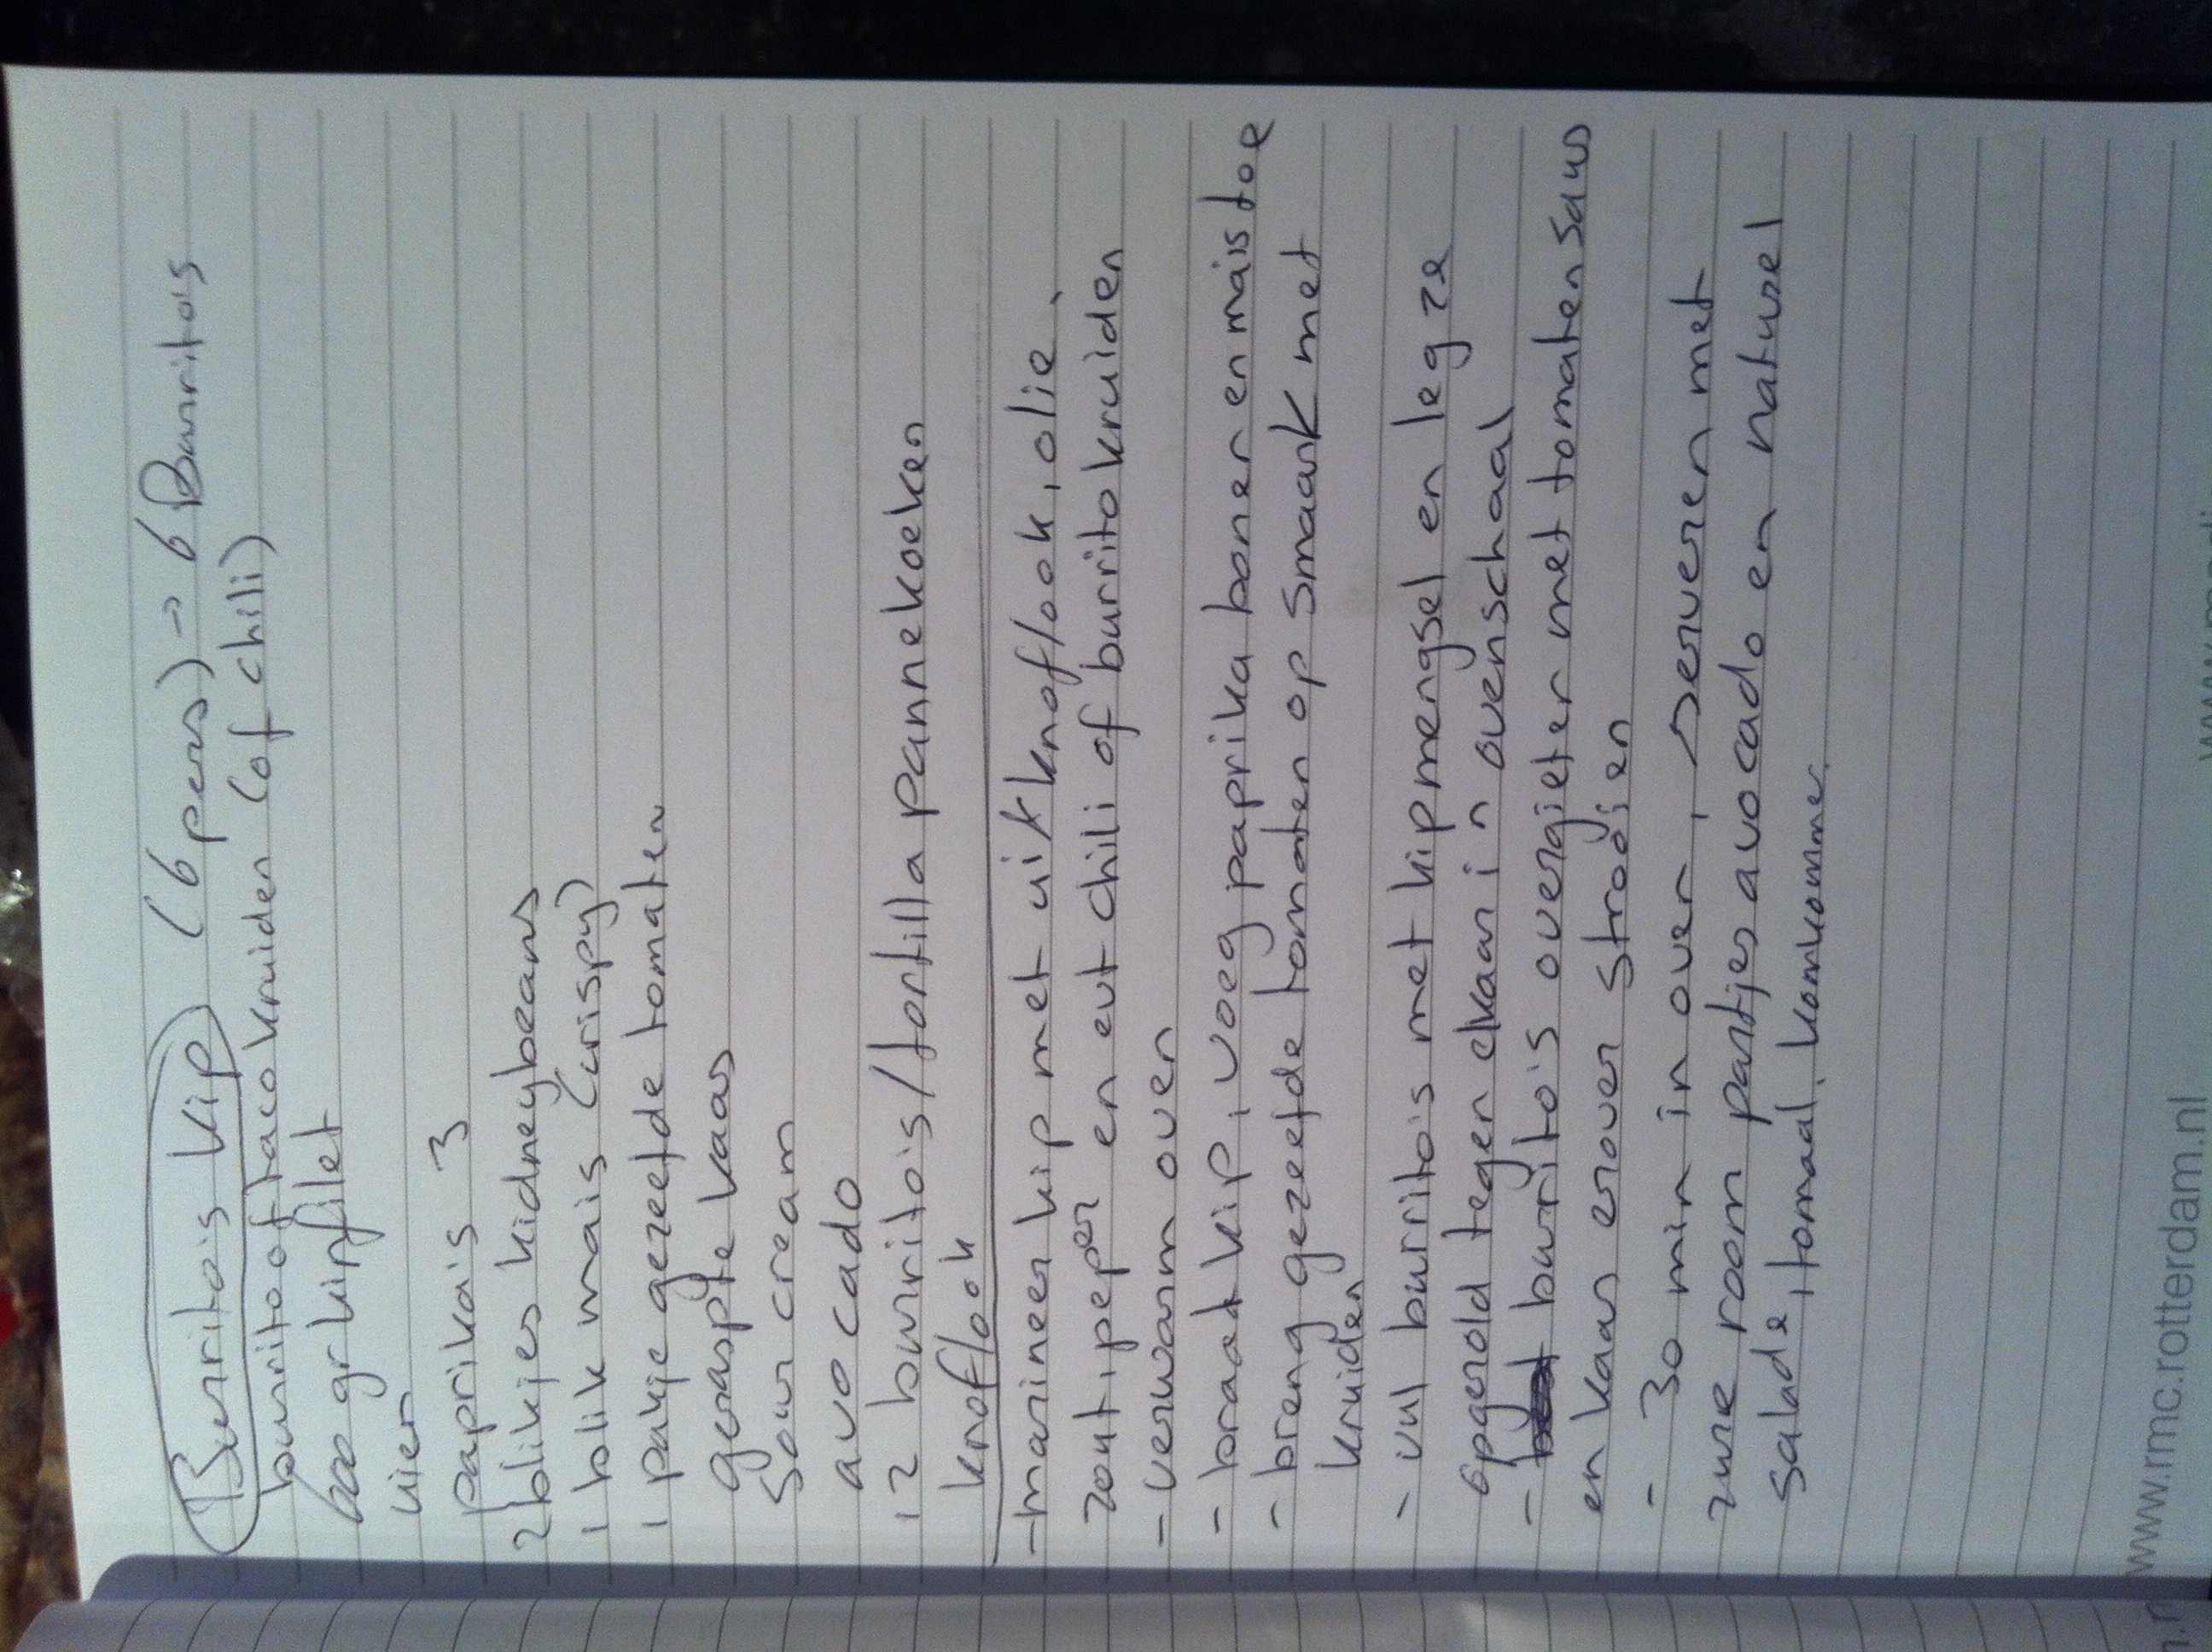 Burrito's kip (6 pers) → 6 Burrito's
burrito of taco kruiden (of chili)
600 gr kipfilet
uien
paprika's 3
2 blikjes kidneybeans
1 blik mais (crispy)
1 pakje gezeefde tomaten
geraspte kaas
sour cream
avocado
12 burrito's/tortilla pannekoeken
knoflook
- marineer kip met ui knoflook, olie,
zout, peper en evt chili of burrito kruiden
- verwarm oven
- braad kip, voeg paprika bonen en mais toe
- breng gezeefde tomaten op smaak met
kruiden
- vul burrito's met kipmengsel en leg ze
opgerold tegen elkaar in ovenschaal
- burrito's overgieten met tomatensaus
en kaas erover strooien
- 30 min in oven, serveren met
zure room partjes avocado en naturel
salade, tomaat, komkomme
www.rmc.rotterdam.nl